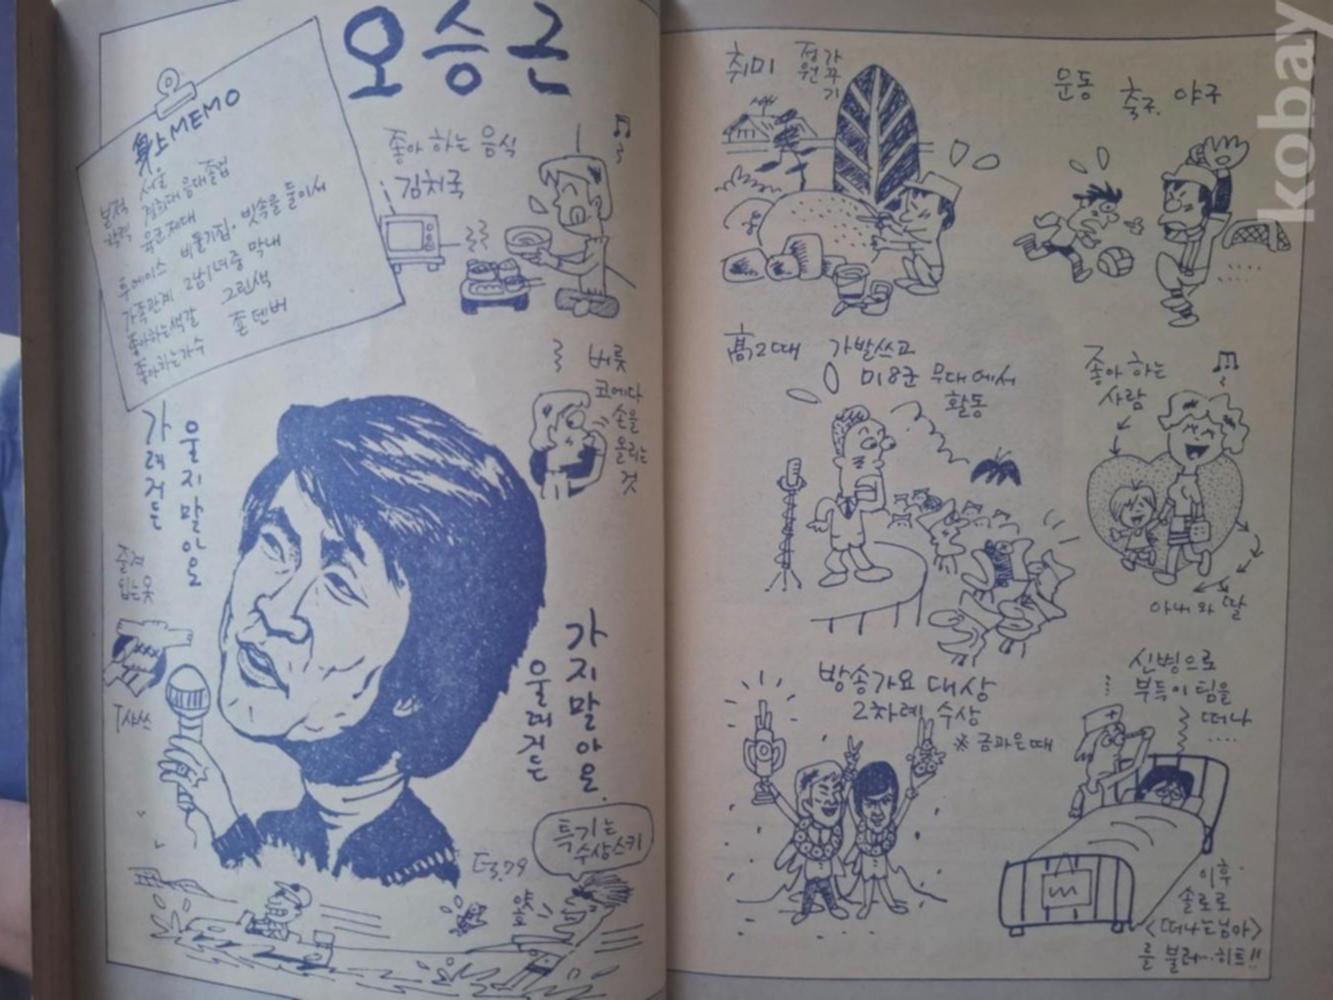 오승근
身上 MEMO
본적 서울
학력 경희대 음대 졸업
육군 제대
투에이스 비둘기집·빗속을 둘이서
가족관계 2남1녀중 막내
좋아하는색갈 그린색
좋아하는가수 죤 덴버
좋아 하는 음식
김치국
버릇
코에다
손을
올리는
것
울지말아요
가려거든
즐겨
입는옷
T샤쓰
가지말아요
울려거든
특기는
수상스키
얏호
취미 정원 가꾸기
운동 축구. 야구
高2때 가발쓰고
미8군 무대에서
활동
좋아 하는
사람
아내와 딸
방송가요 대상
2차례 수상
※ 금과은때
신병으로
부득이 팀을
떠나
....
이후
솔로로
<떠나는님아>
를 불러…히트!!
kobay